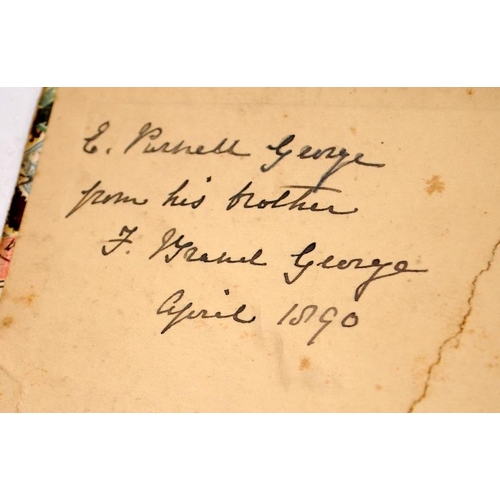 E. Purnell George
from his brother
F. Brand George
April 1890